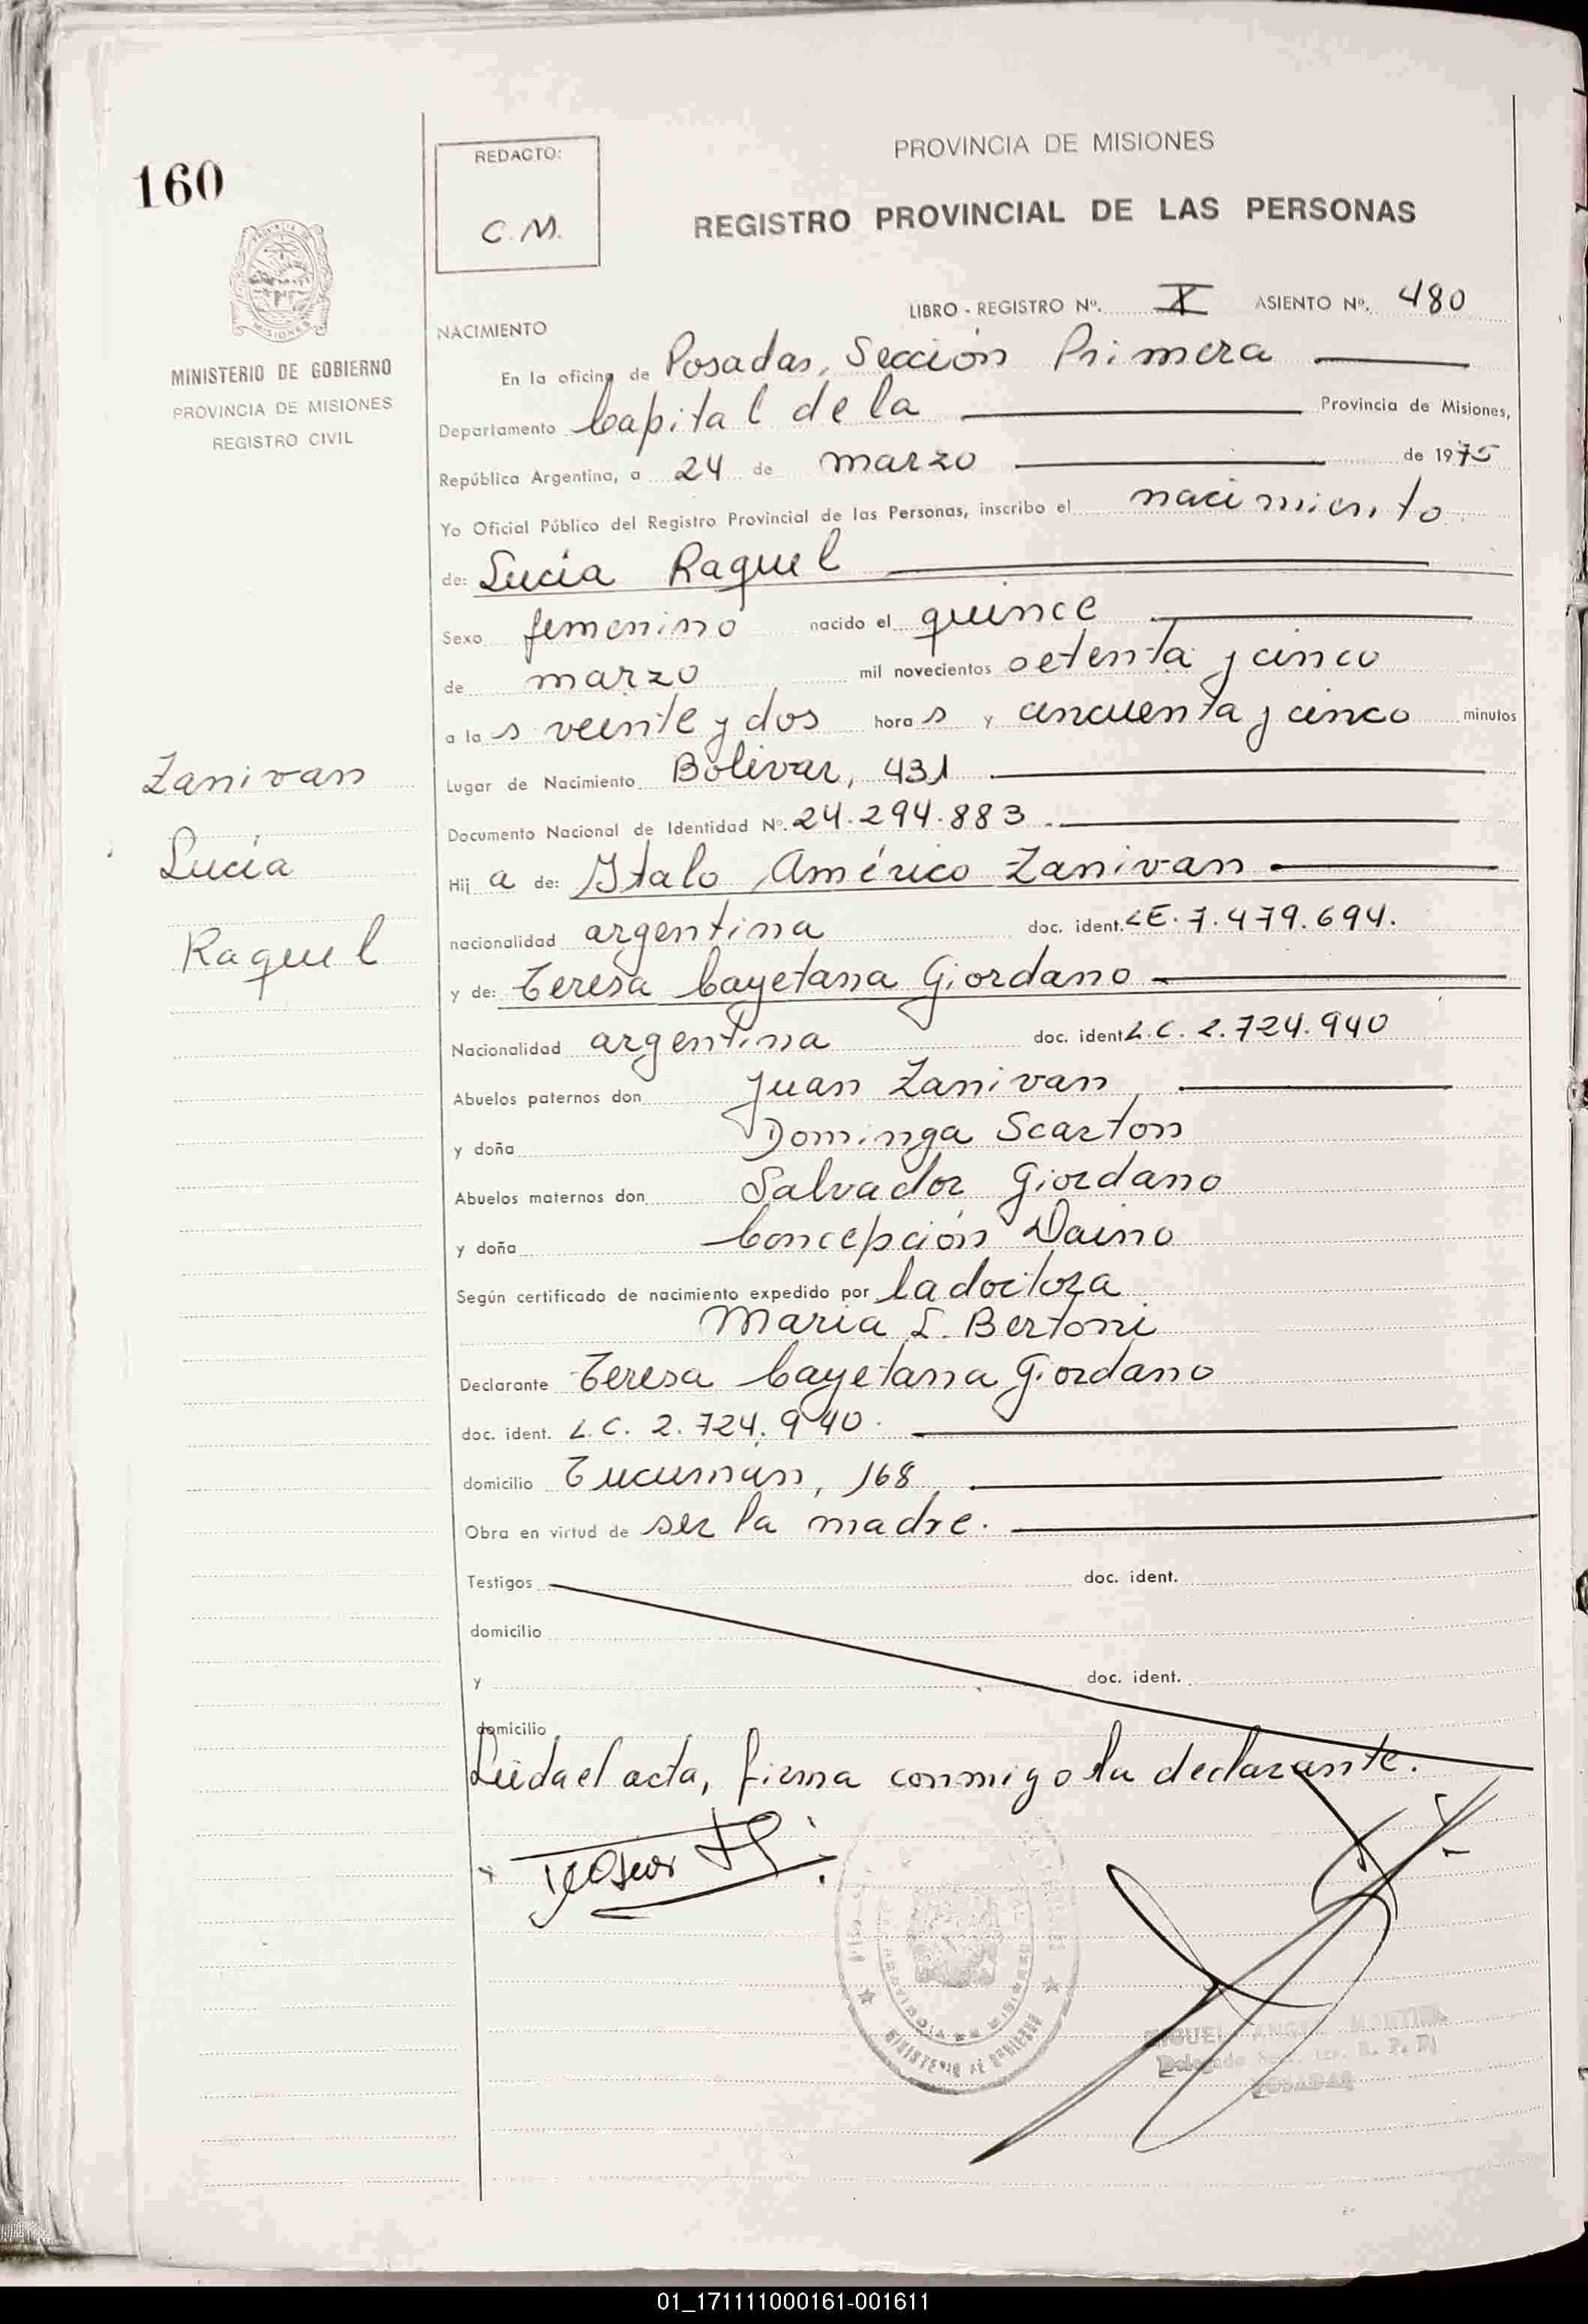 160
REDACTO:
C.M.
PROVINCIA DE MISIONES
REGISTRO PROVINCIAL DE LAS PERSONAS
MINISTERIO DE GOBIERNO
PROVINCIA DE MISIONES
REGISTRO CIVIL
LIBRO - REGISTRO Nº. X ASIENTO Nº. 480
NACIMIENTO
En la oficina de Posadas, Sección Primera
Departamento Capital de la Provincia de Misiones,
República Argentina, a 24 de marzo de 1975
Yo Oficial Público del Registro Provincial de las Personas, inscribo el nacimiento
de: Lucía Raquel
Sexo femenino nacido el quince
de marzo mil novecientos setenta y cinco
a las veinte y dos horas y cincuenta y cinco minutos
Lugar de Nacimiento Bolívar, 431
Documento Nacional de Identidad Nº. 24.294.883.
Hija de: Italo Américo Zanivan
nacionalidad argentina doc. ident. LE. 7.479.694.
y de: Teresa Cayetana Giordano
Nacionalidad argentina doc. ident. L.C. 2.724.940
Abuelos paternos don Juan Zanivan
y doña Dominga Scarton
Abuelos maternos don Salvador Giordano
y doña Concepción Daino
Según certificado de nacimiento expedido por la doctora
Maria L. Bertoni
Declarante Teresa Cayetana Giordano
doc. ident. L.C. 2.724.940.
domicilio Tucuman, 168
Obra en virtud de ser la madre.
Testigos doc. ident.
domicilio
y doc. ident.
domicilio
Leida el acta, firma conmigo la declarante.
Zanivan
Lucía
Raquel
MINISTERIO DE GOBIERNO
MIGUEL ANGEL
Delegado
POSADAS
01_171111000161-001611